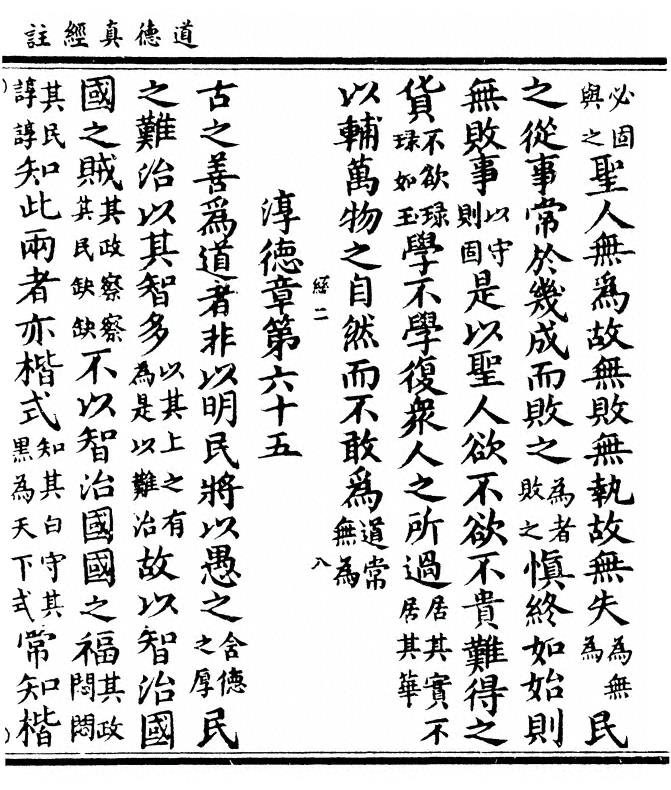 道德真經註
必固與之聖人無爲故無敗無執故無失為無為民
之從事常於幾成而敗之為者敗之愼終如始則
無敗事以守則固是以聖人欲不欲不貴難得之
貨不欲琭琭如玉學不學復衆人之所過居其實不居其華
以輔萬物之自然而不敢爲道常無為
經二
八
淳德章第六十五
古之善爲道者非以明民將以愚之含德之厚民
之難治以其智多以其上之有為是以難治故以智治國
國之賊其政察察其民缺缺不以智治國國之福其政悶悶
其民諄諄知此兩者亦楷式知其白守其黑為天下式常知楷